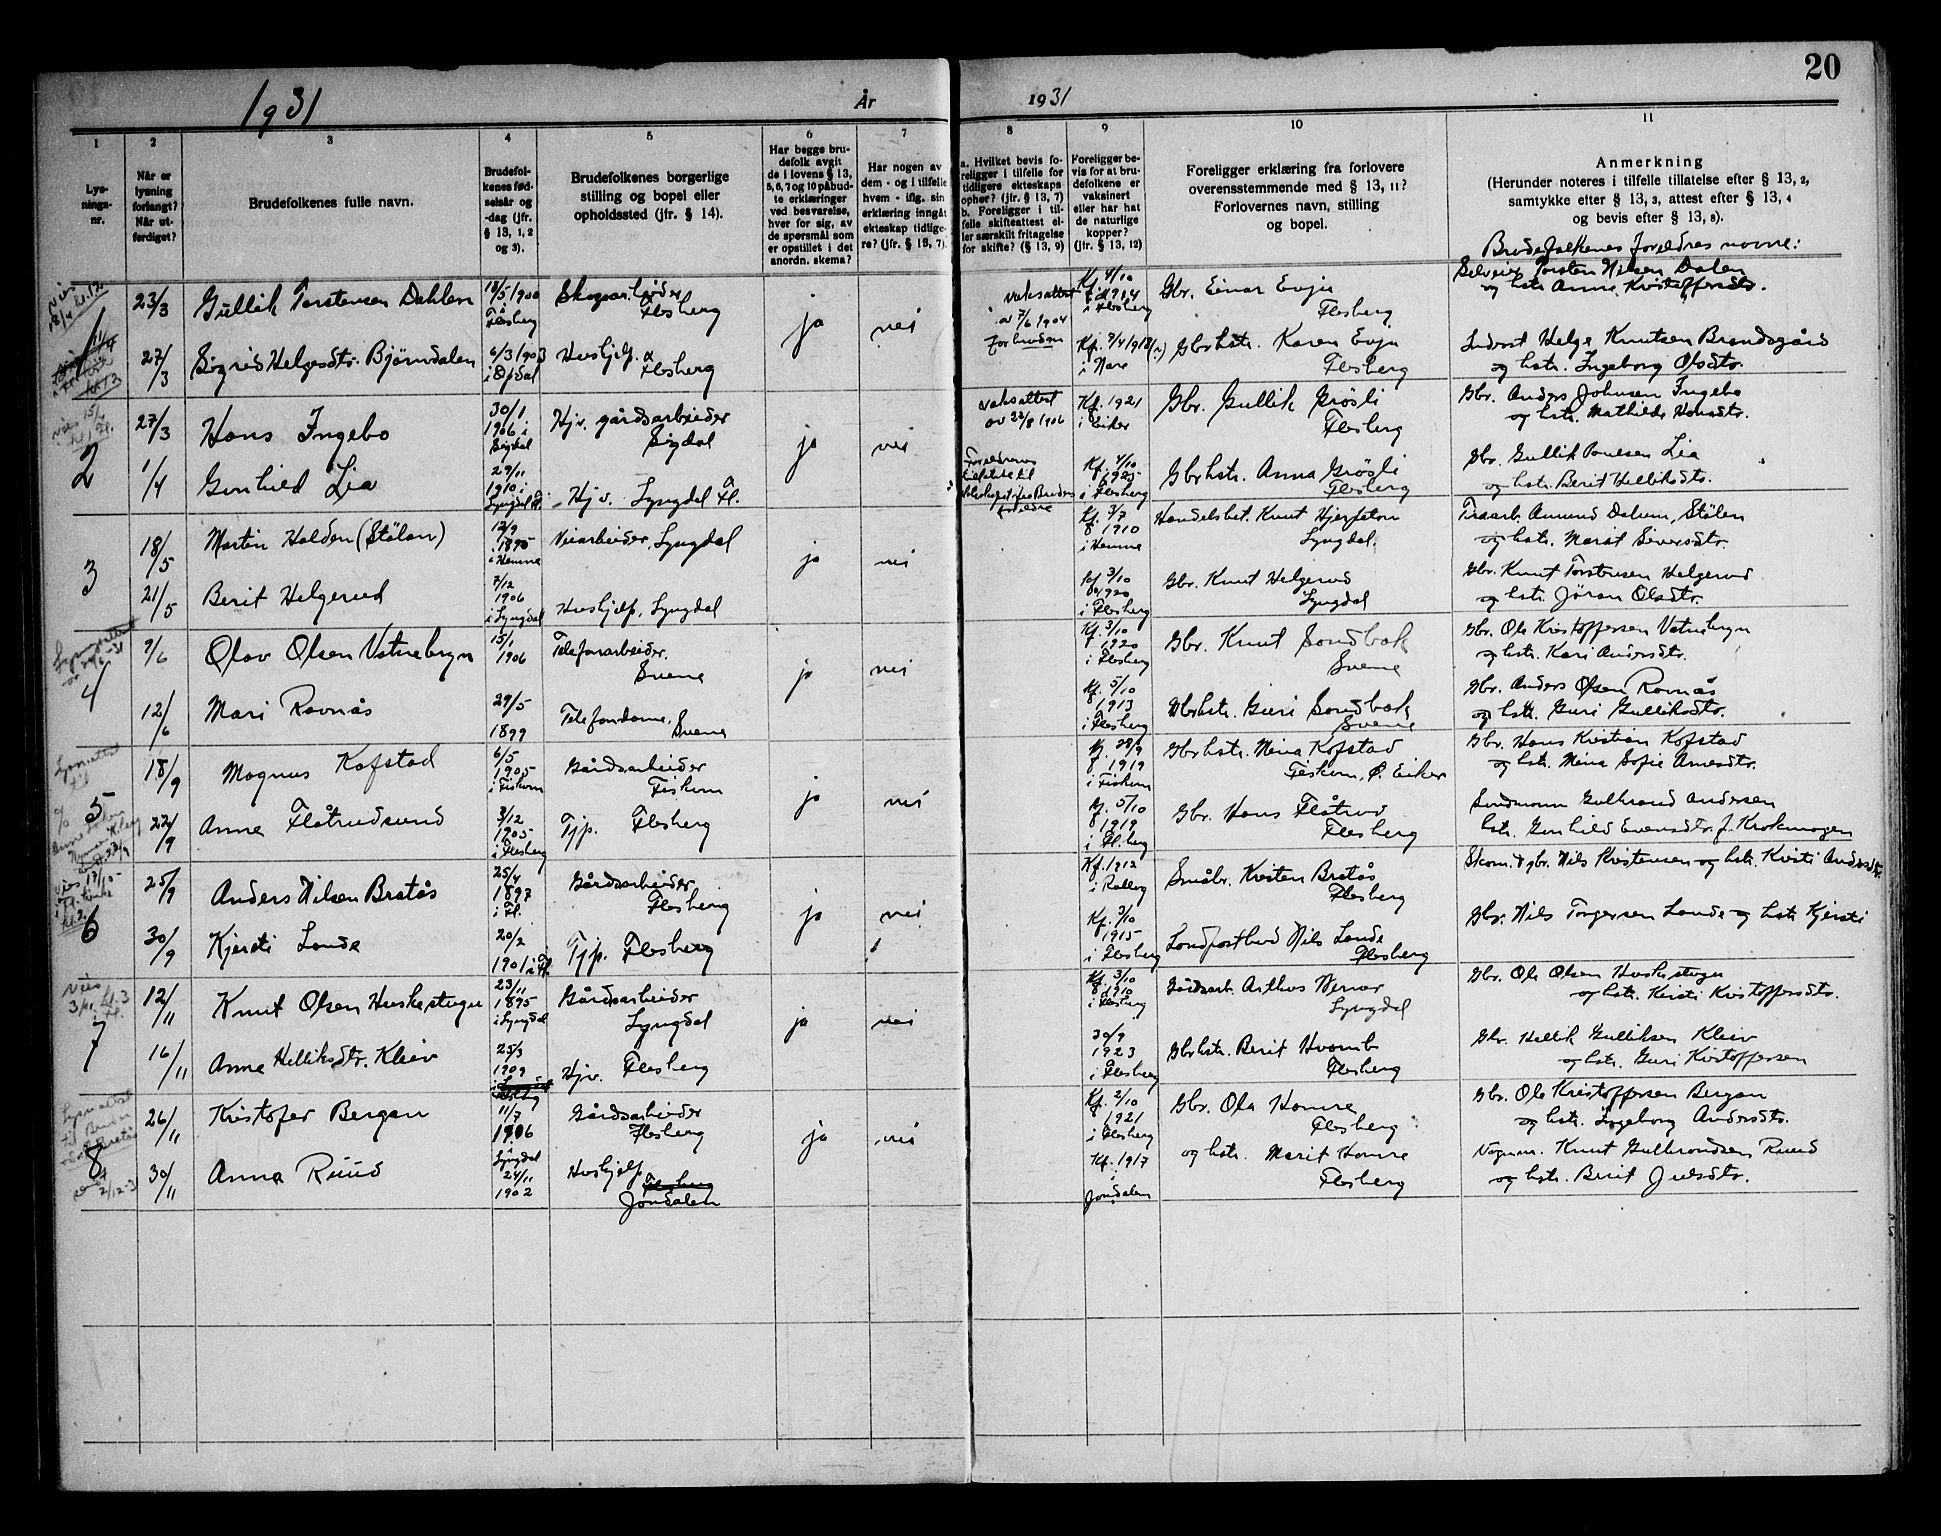 20
1931
År
1931
1
2
3
4
5
6
7
8
9
10
11
Lys-
nings-
nr.
Når er
lysning
forlangt?
Når ut-
ferdiget?
Brudefolkenes fulle navn.
Brudefol-
kenes fød-
selsår og
-dag (jfr.
§ 13, 1, 2
og 3).
Brudefolkenes borgerlige
stilling og bopel eller
opholdssted (jfr. § 14).
Har begge bru-
defolk avgit
de i lovens § 13,
5, 6, 7 og 10 påbud-
te erklæringer
ved besvarelse,
hver for sig, av
de spørsmål som
er opstillet i det
anordn. skema?
Har nogen av
dem - og i tilfelle
hvem - iflg. sin
erklæring inngått
ekteskap tidlige-
re? (jfr. § 13, 7).
a. Hvilket bevis fo-
religger i tilfelle for
tidligere ekteskaps
opphør? (jfr. § 13, 7)
b. Foreligger i til-
felle skifteattest el-
ler særskilt fritagelse
for skifte? (§ 13, 9)
Foreligger be-
vis for at bru-
defolkene er
vaksinert
eller har hat
de naturlige
kopper?
(jfr. § 13, 12)
Foreligger erklæring fra forlovere
overensstemmende med § 13, 11?
Forlovernes navn, stilling
og bopel.
Anmerkning
(Herunder noteres i tilfelle tillatelse efter § 13, 2,
samtykke efter § 13, 3, attest efter § 13, 4
og bevis efter § 13, 8).
Brudefolkenes foreldres navne:
1
23/3
Gullik Torstensen Dahlen
18/5 1900
Flesberg
Skogsarbeider
Flesberg
ja
nei
vaksattest
av 7/6 1904
for bruden
Kf. 4/10
1914
i Flesberg
Gbr. Einar Evju
Flesberg
Selveier Torsten Nilsen Dalen
og hstr. Anne Kristoffersdtr.
27/3
Sigrid Helgesdtr. Bjørndalen
6/3 1903
i Opdal
Hushjelp
Flesberg
i Nore
Gbrhstr. Karen Evju
Flesberg
Helge Knutsen Brandsgård
og hstr. Ingeborg Olsdtr.
2
27/3
Hans Ingebo
30/1
1906 i
Sigdal
Hjv. gårdsarbeider
Sigdal
ja
nei
vaksattest
av 22/8 1906
Kf. 1921
i Eiker
Gbr. Gullik Grøsli
Flesberg
Gbr. Anders Johnsen Ingebo
og hstr. Mathilde Hansdtr.
1/4
Gunhild Lia
29/11
1910 i
Lyngdal
Hjv. Lyngdal Fl.
Kf. 4/10
1925
i Flesberg
Gbrhstr. Anna Grøsli
Flesberg
Gbr. Gullik Paulsen Lia
og hstr. Berit Helliksdtr.
3
18/5
Martin Halden (Stølan)
12/9
1895
i Hemne
Veiarbeider, Lyngdal
ja
nei
Kf. 3/7
1910
i Hemne
Handelsbet. Knut Hjertøn
Lyngdal.
Amund Dalum, Stølen
og hstr. Marit Siversdtr.
21/5
Berit Helgerud
7/12
1906
i Lyngdal
Hushjelp, Lyngdal
Kf. 3/10
1920
i Flesberg
Gbr. Knut Helgerud
Lyngdal
Gbr. Knut Torstensen Helgerud
og hstr. Jøran Olsdtr.
4
9/6
Olav Olsen Vatnebryn
15/1
1906
Telefonarbeider.
Svene
ja
nei
Kf. 3/10
1920
i Flesberg
Gbr. Knut Sandbak
Svene
Gbr. Ole Kristoffersen Vatnebryn
og hstr. Kari Andersdtr.
12/6
Mari Ravnås
29/5
1899
Telefondame,
Svene
Kf. 5/10
1913
i Flesberg
Gbrhstr. Guri Sandbak
Svene
Gbr. Anders Olsen Ravnås
og hstr. Guri Gulliksdtr.
5
18/9
Magnus Kofstad
6/5
1905
i Fiskum
Gårdsarbeider
Fiskum
ja
nei
Kf. 28/9
1919
i Fiskum
Gbrhstr. Nina Kofstad
Fiskum, Ø. Eiker
Gbr. Hans Kristian Kofstad
og hstr. Nina Sofie Arnesdtr.
22/9
Anne Flåtrudsund
3/12
1905
i Flesberg
Tjp. Flesberg
Kf. 5/10
1919
i Fl.berg
Gbr. Hans Flåtrud
Flesberg
Landmann Gulbrand Andersen
hstr. Gunhild Evensdtr. f. Krokmogen
6
25/9
Anders Nilsen Bratås
25/4
1897
i Fl.
Gårdsarbeider
Flesberg
ja
nei
Kf. 1912
i Rollag
Småbr. Kristen Bratås
Flesberg
Skom. & gbr. Nils Kristensen og hstr. Kristi Andersdtr.
30/9
Kjersti Lande
20/2
1901 i Fl.
Tjp. Flesberg
Kf. 3/10
1915
i Flesberg
Landpostbud Nils Lande
Flesberg
Gbr. Nils Torgersen Lande og hstr. Kjersti
7
12/11
Knut Olsen Huskestugu
23/11
1895
i Lyngdal
Gårdsarbeider
Lyngdal
ja
nei
Kf. 3/10
1910
i Flesberg
Gårdsarb. Arthus Wernar
Lyngdal
Gbr. Ole Olsen Huskestugu
og hstr. Kirsti Kristoffersdtr.
16/11
Anne Helliksdtr. Kleiv
25/3
1909
Hjv. Flesberg
30/9
1923
i Flesberg
Gbrhstr. Berit Hvamb
Flesberg
Gbr. Hellik Gulliksen Kleiv
og hstr. Guri Kristoffersen
8
26/11
Kristofer Bergan
11/7
1906
Lyngdal
Gårdsarbeider
Flesberg
ja
nei
Kf. 2/10
1921
i Flesberg
Gbr. Ola Hamre
Flesberg
Gbr. Ole Kristoffersen Bergan
og hstr. Ingeborg Andersdtr.
30/11
Anna Ruud
24/11
1902
Hushjelp
Flesberg
Jondalen
Kf. 1917
i
Jondalen
og hstr. Marit Hamre
Flesberg
Knut Gulbrandsen Ruud
og hstr. Berit Juelsdtr.